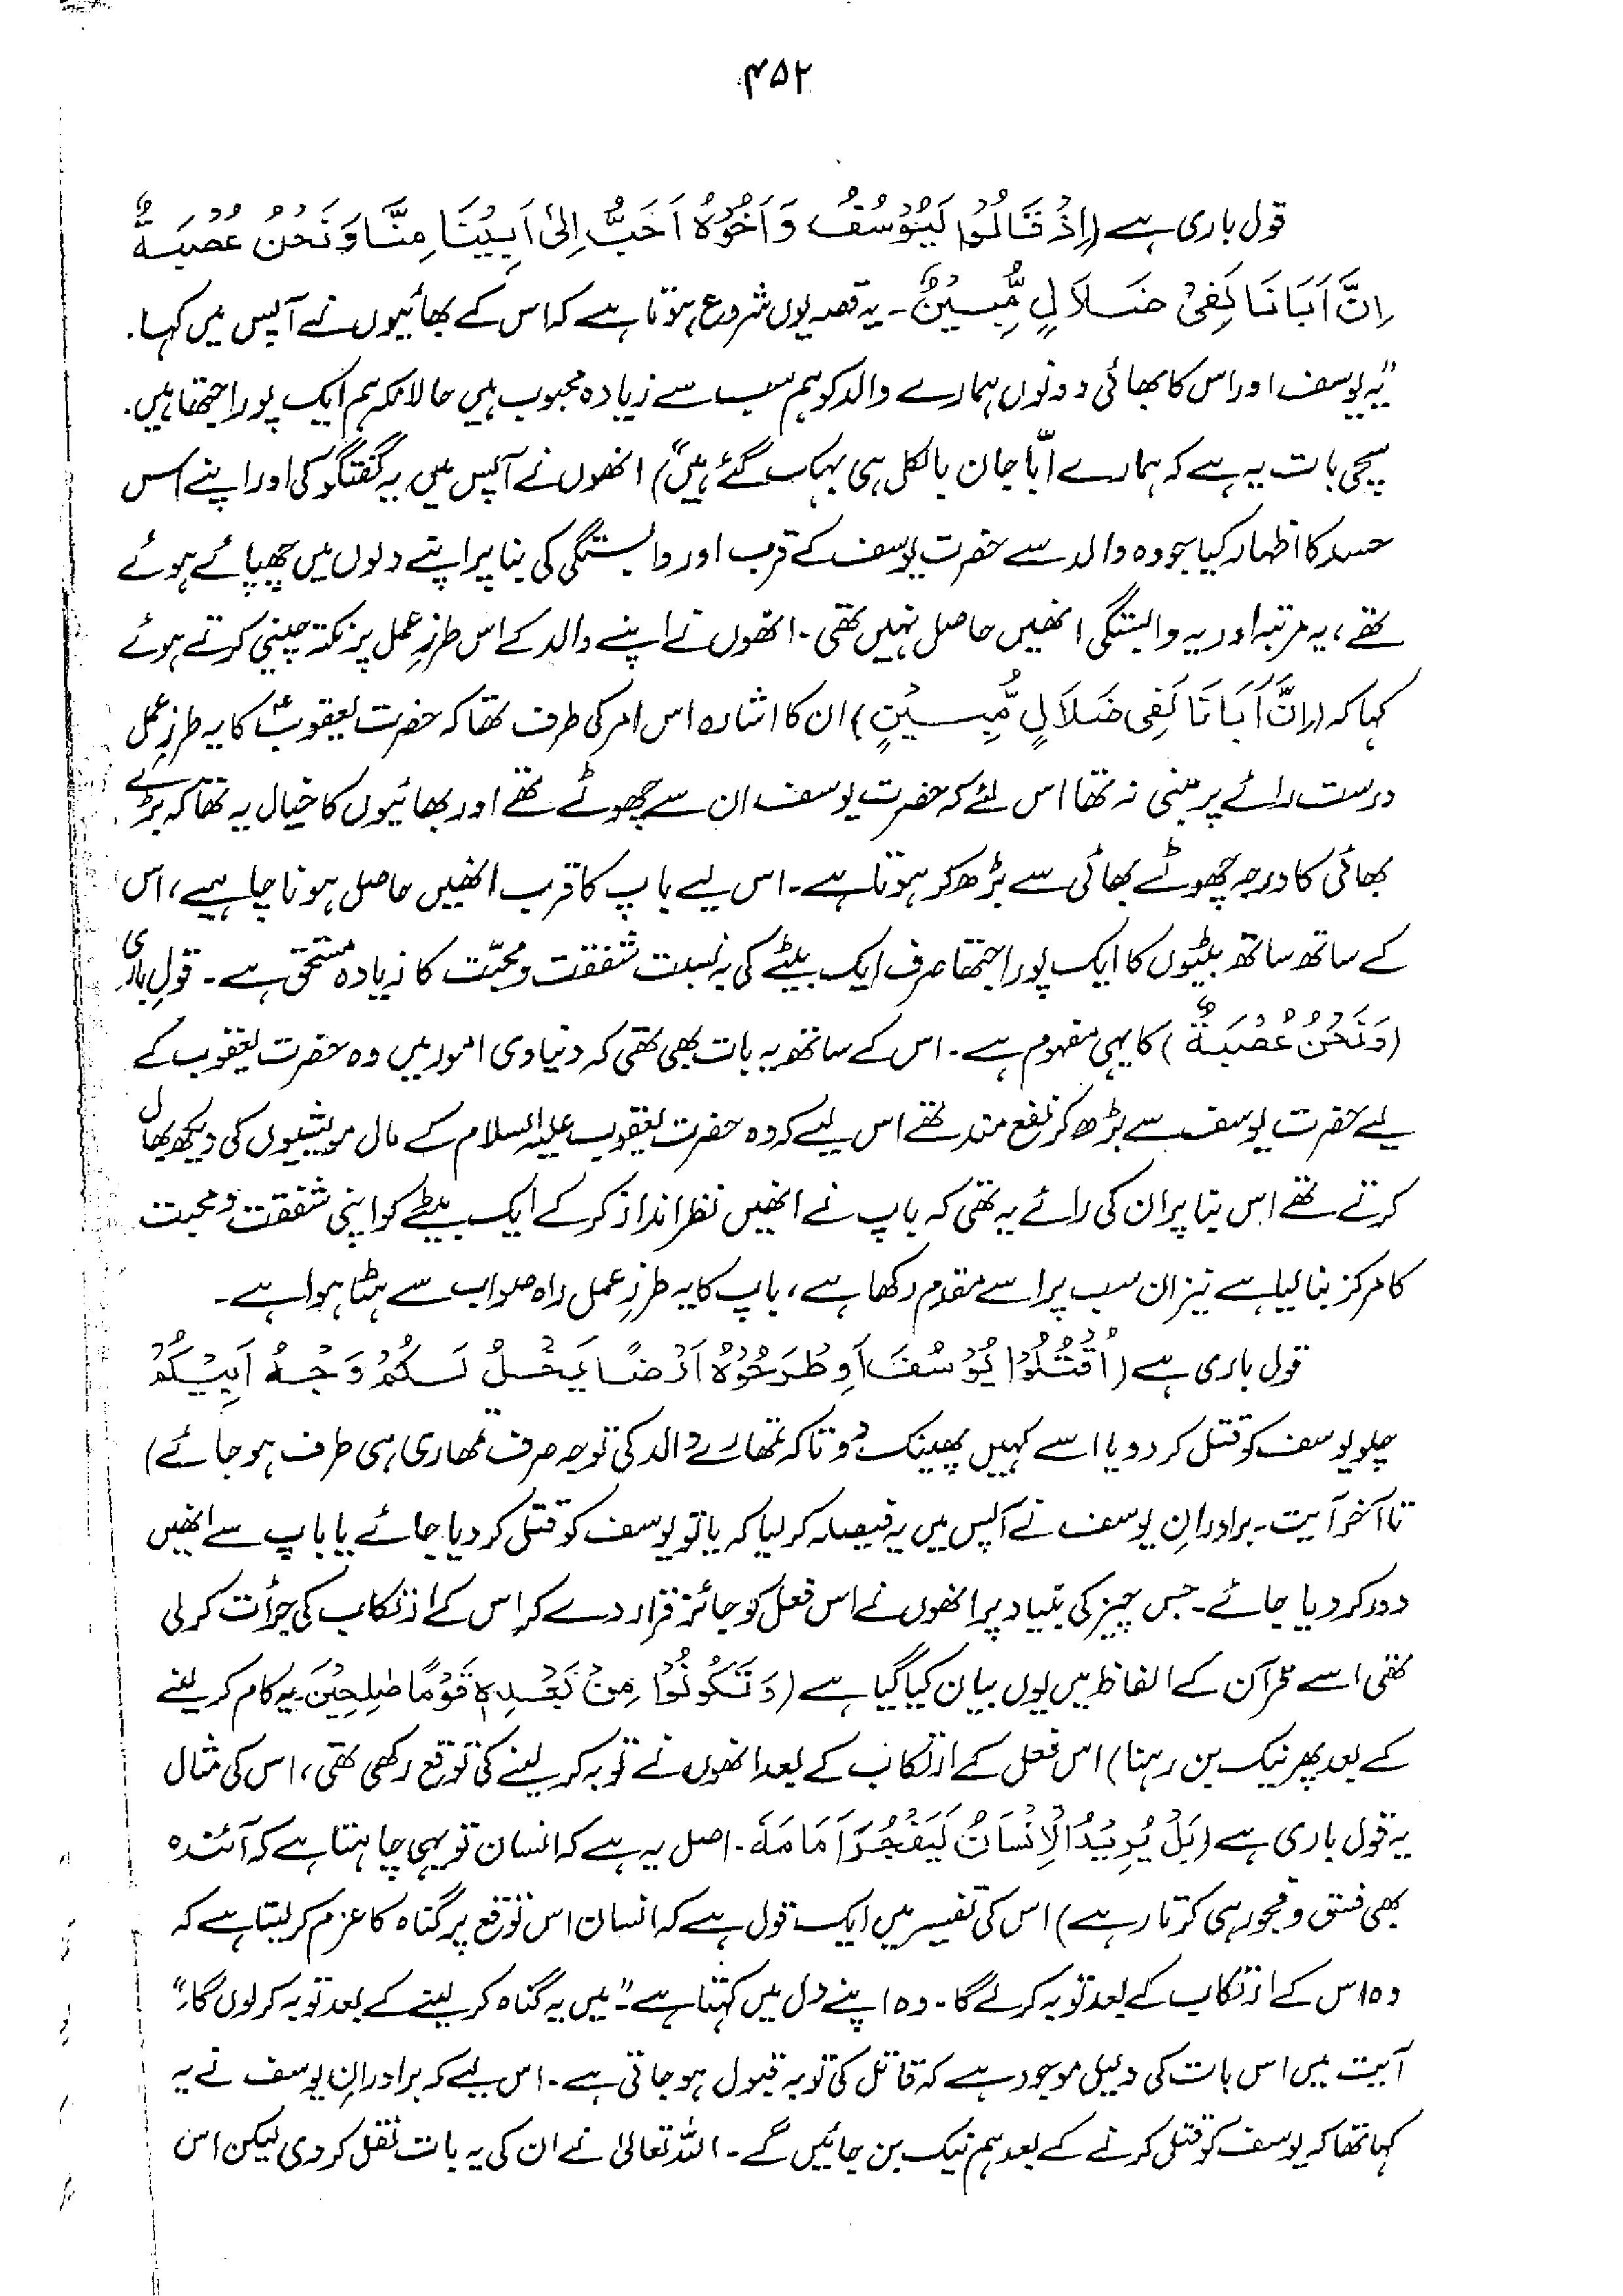 ۴۵۲
قول باری ہے (اِذْ قَالُوْا لَيُوْسُفُ وَاَخُوْهُ اَحَبُّ اِلٰى اَبِيْنَا مِنَّا وَنَحْنُ عُصْبَةٌ
اِنَّ اَبَانَا لَفِىْ ضَلَالٍ مُّبِيْنٍ۔ یہ قصہ یوں شروع ہوتا ہے کہ اس کے بھائیوں نے آپس میں کہا۔
"یہ یوسف اور اس کا بھائی دونوں ہمارے والد کو ہم سب سے زیادہ محبوب ہیں حالانکہ ہم ایک پورا جتھا ہیں۔
سچی بات یہ ہے کہ ہمارے ابّا جان بالکل ہی بہک گئے ہیں") انھوں نے آپس میں یہ گفتگو کی اور اپنے اس
حسد کا اظہار کیا جو وہ والد سے حضرت یوسف کے قرب اور وابستگی کی بنا پر اپنے دلوں میں چھپائے ہوئے
تھے، یہ مرتبہ اور یہ وابستگی انھیں حاصل نہیں تھی۔ انھوں نے اپنے والد کے اس طرزِ عمل پر نکتہ چینی کرتے ہوئے
کہا کہ (اِنَّ اَبَانَا لَفِى ضَلَالٍ مُّبِيْنٍ) ان کا اشارہ اس امر کی طرف تھا کہ حضرت یعقوبؑ کا یہ طرزِ عمل
درست رائے پر مبنی نہ تھا اس لئے کہ حضرت یوسف ان سے چھوٹے تھے اور بھائیوں کا خیال یہ تھا کہ بڑے
بھائی کا درجہ چھوٹے بھائی سے بڑھ کر ہوتا ہے۔ اس لیے باپ کا قرب انھیں حاصل ہونا چاہیے، اس
کے ساتھ ساتھ بیٹیوں کا ایک پورا جتھا صرف ایک بیٹے کی بہ نسبت شفقت و محبّت کا زیادہ مستحق ہے۔ قولِ باری
(وَنَحْنُ عُصْبَةٌ) کا یہی مفہوم ہے۔ اس کے ساتھ یہ بات بھی تھی کہ دنیاوی امور میں وہ حضرت یعقوب کے
لیے حضرت یوسف سے بڑھ کر نفع مند تھے اس لیے کہ وہ حضرت یعقوب علیہ السلام کے مال مویشیوں کی دیکھ بھال
کرتے تھے اس بنا پر ان کی رائے یہ تھی کہ باپ نے انھیں نظر انداز کر کے ایک بیٹے کو اپنی شفقت و محبت
کا مرکز بنا لیا ہے نیز ان سب پر اسے مقدم رکھا ہے، باپ کا یہ طرزِ عمل راہ صواب سے ہٹا ہوا ہے۔
قول باری ہے (اُقْتُلُوْا يُوْسُفَ اَوِ طْرَحُوْهُ اَرْضًا يَخْلُ لَكُمْ وَجْهُ اَبِيْكُمْ
چلو یوسف کو قتل کر دو یا اسے کہیں پھینک دو تاکہ تمھارے والد کی توجہ صرف تمھاری ہی طرف ہو جائے)
تا آخر آیت۔ برادرانِ یوسف نے آپس میں یہ فیصلہ کر لیا کہ یا تو یوسف کو قتل کر دیا جائے یا باپ سے انھیں
دور کر دیا جائے۔ جس چیز کی بنیاد پر انھوں نے اس فعل کو جائز قرار دے کر اس کے ارتکاب کی جرأت کر لی
تھی اسے قرآن کے الفاظ میں یوں بیان کیا گیا ہے (وَتَكُوْنُوْا مِنْ بَعْدِهٖ قَوْمًا صٰلِحِيْنَ یہ کام کر لینے
کے بعد پھر نیک بن رہنا) اس فعل کے ارتکاب کے بعد انھوں نے توبہ کر لینے کی توقع رکھی تھی، اس کی مثال
یہ قول باری ہے (بَلْ يُرِيْدُ الْاِنْسَانُ لِيَفْجُرَ اَمَامَهٗ۔ اصل یہ ہے کہ انسان تو یہی چاہتا ہے کہ آئندہ
بھی فسق و فجور ہی کرتا رہے) اس کی تفسیر میں ایک قول ہے کہ انسان اس توقع پر گناہ کا عزم کر لیتا ہے کہ
وہ اس کے ارتکاب کے بعد توبہ کرلے گا۔ وہ اپنے دل میں کہتا ہے۔ "میں یہ گناہ کر لینے کے بعد توبہ کر لوں گا۔"
آیت میں اس بات کی دلیل موجود ہے کہ قاتل کی توبہ قبول ہو جاتی ہے۔ اس لیے کہ برادرانِ یوسف نے یہ
کہا تھا کہ یوسف کو قتل کرنے کے بعد ہم نیک بن جائیں گے۔ اللہ تعالیٰ نے ان کی یہ بات نقل کر دی لیکن اس